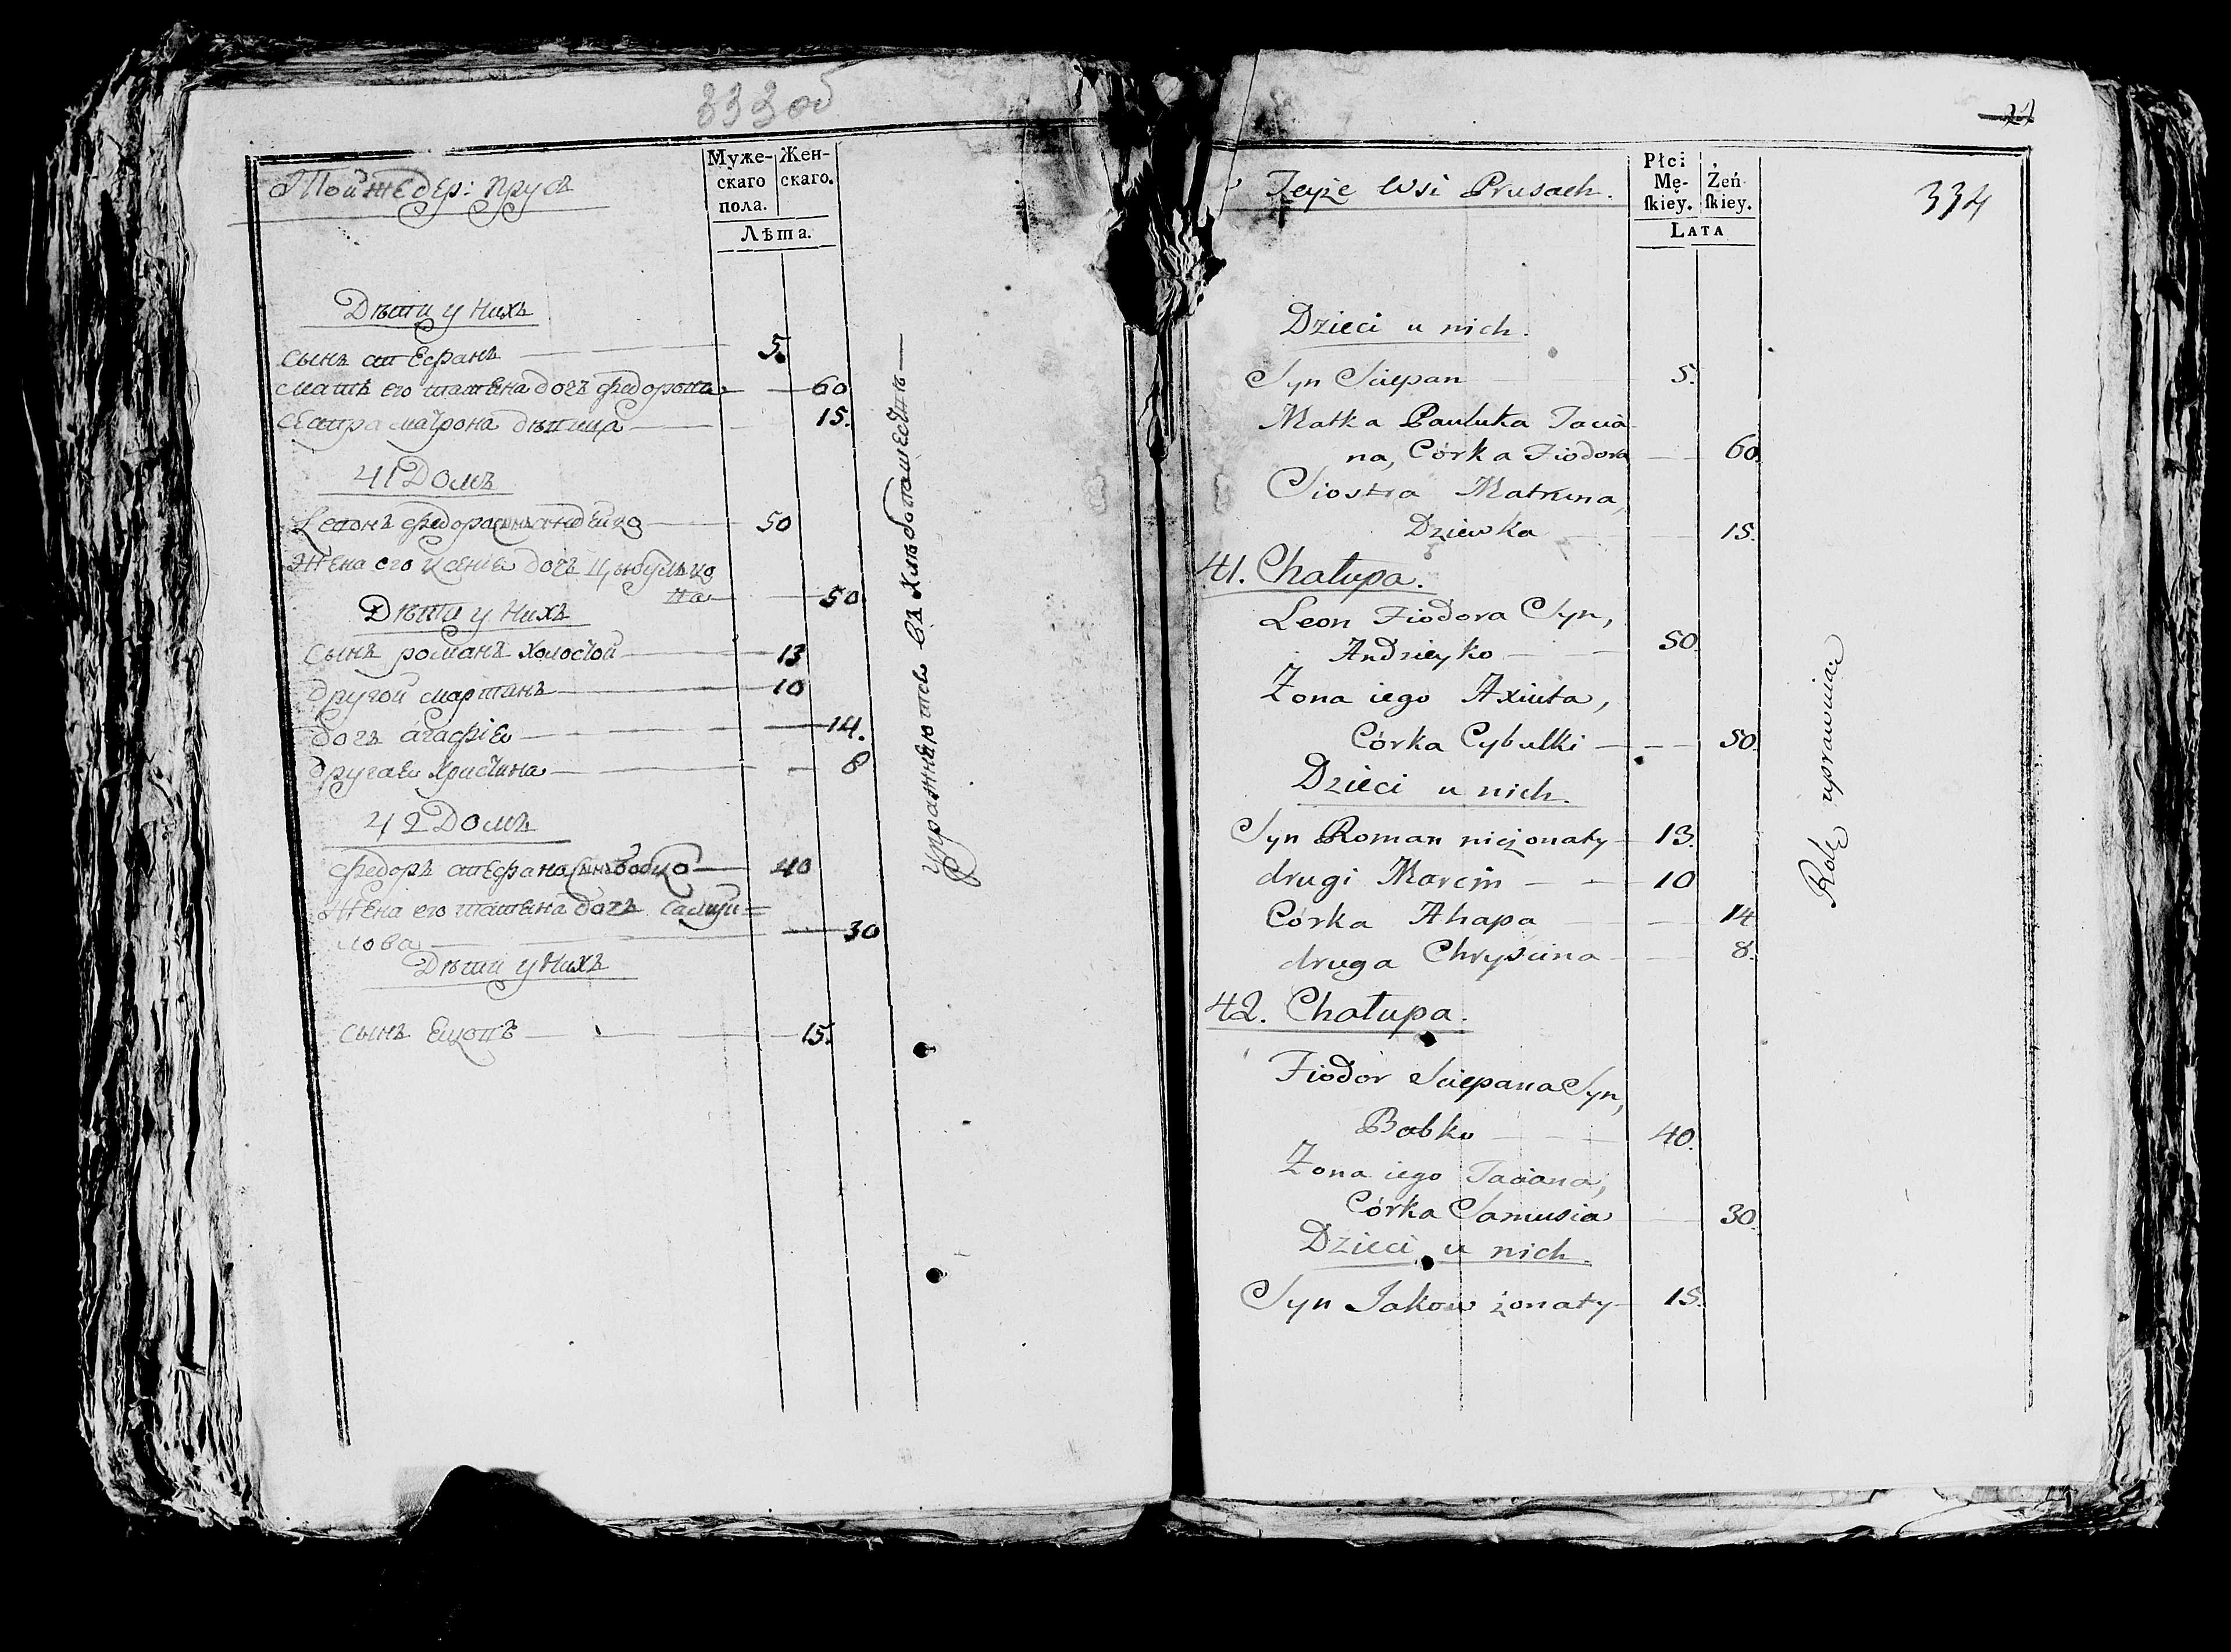 333 об
Той же дер: Прусъ
Муже- Жен-
скаго скаго.
пола.
Лѣта.
Дѣти у нихъ
сынъ стефанъ 5.
мать его татьяна дочь федорова 60
сестра матрона девица 15.
41 Домъ
Леонъ федора сынъ андейко 50
Жена его ксения дочь Цыбулько
на 50.
Дѣти у нихъ
сынъ романъ холостой 13
другой мартинъ 10
дочь агафiя 14.
другая христина 8
42 Домъ
федоръ стефана сынъ бобко 40
Жена его татьяна дочь самуй=
лова 30
Дѣти у нихъ
сынъ якопъ 15.
Упражняются въ хлебопашестве
24
334
Teyże Wsi Prusach.
Płci
Mę- Zeń
skiey. skiey.
LATA
Dzieci u nich.
Syn Sciepan 5.
Matka Pauluka Tacia
na, Córka Fiodora 60.
Siostra Matruna,
Dziewka 15.
41. Chałupa.
Leon Fiodora Syn,
Andrieyko 50.
Żona iego Axiuta,
Córka Cybulki 50.
Dzieci u nich.
Syn Roman nieżonaty 13.
drugi Marcin 10
Córka Ahapa 14
druga Chryscina 8.
42. Chałupa.
Fiodor Sciepana Syn,
Babko 40.
Żona iego Taciana,
Córka Samusia 30.
Dzieci u nich.
Syn Jakow żonaty 15.
Rolę uprawniac